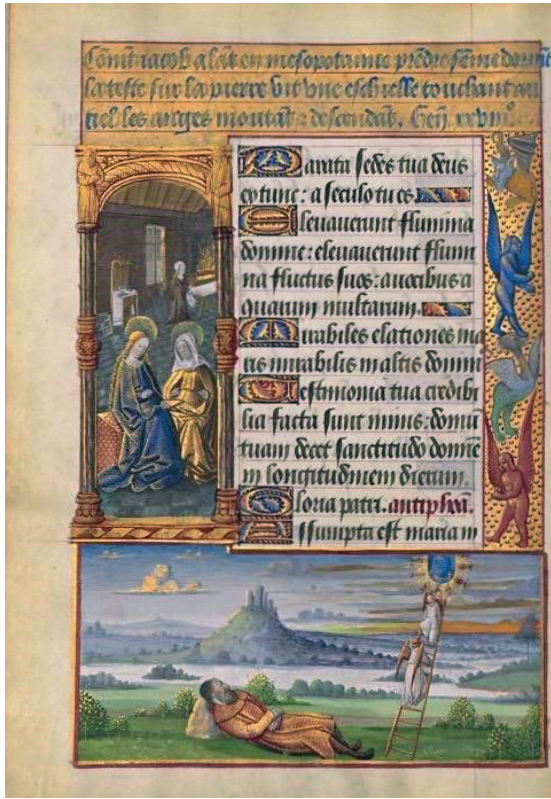 Comͨt iacob alãt en mesopotamie pñdre fẽme dormãt
la teste sur la pierre vit vne eschielle touchant au
ciel les anges montãs ⁊ descendãs. Geñ xxviii°
Parata sedes tua deus
ex tunc: a seculo tu es
Eleuauerunt flumina
domine: eleuauerunt flumi
na fluctus suos: a uocibus a
quarum multarum.
Mirabiles elationes ma
ris mirabilis in altis domin
Testimonia tua credibi
lia facta sunt nimis: domũ
tuam decet sanctitudo domine
in longitudinem dierum.
Gloria patri. antiphoã.
Assumpta est maria in